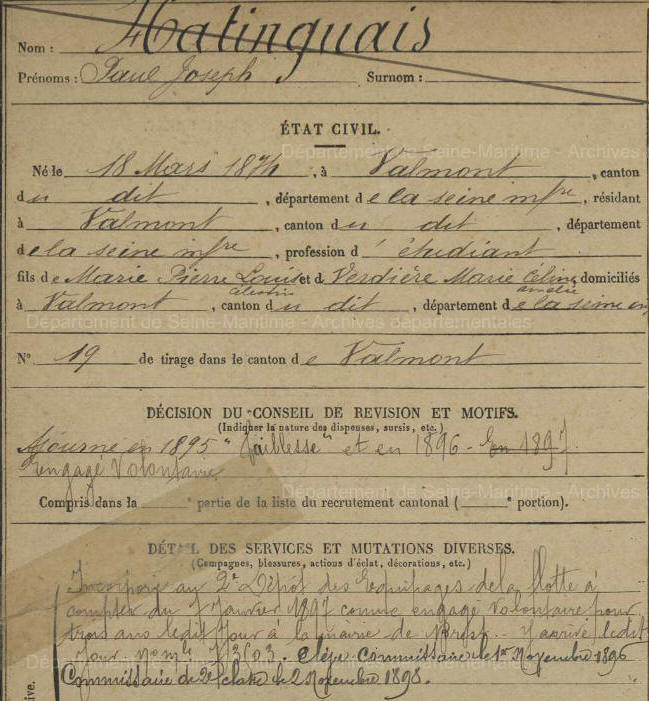 Nom : Hatinguais
Prénoms : Paul Joseph Surnom :
ÉTAT CIVIL.
Département de Seine-Maritime - Archives
Né le 18 Mars 1874, à Valmont, canton
du dit, département de la seine infre, résidant
à Valmont, canton du dit, département
de la seine infre, profession d'étudiant
fils de Marie Pierre Louis et d Verdière Marie Céline domiciliés
Célestin Amélie
à Valmont, canton du dit, département de la seine in
Département de Seine-Maritime - Archives départementales
N° 19 de tirage dans le canton de Valmont
DÉCISION DU CONSEIL DE REVISION ET MOTIFS.
(Indiquer la nature des dispenses, sursis, etc.)
Ajourné en 1895 "faiblesse" et en 1896 - En 1897.
engagé Volontaire
Compris dans la e partie de la liste du recrutement cantonal ( e portion).
DÉTAIL DES SERVICES ET MUTATIONS DIVERSES.
(Campagnes, blessures, actions d'éclat, décorations, etc.)
Incorporé au 2e Dépôt des Equipages de la flotte à
compter du Janvier 1897 comme engagé Volontaire pour
trois ans ledit jour à la mairie de Brest. arrivé ledit
jour. Élève Commissaire le 1er Novembre 1896
Commissaire de 2e classe le 2 Novembre 1898.
ive.